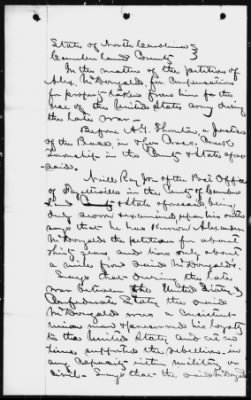 State of North Carolina }
Cumberland County }
In the matter of the petition of
Alex McDonald for compensation
for property taken from him for the
use of the United States army during
the late war —
Before A. G. Thornton, a Justice
of the Peace, in
in the County & State afore
said.
Neill Ray Jr of the Post Office
of Fayetteville in the County of Cumber
land & State aforesaid being
duly sworn & examined upon his oath
says that he has known Alexander
McDonald the petitioner for about
thirty years and lives only about
a mile from said McDonald's
Says that during the late
war between the United States &
Confederate States the said
McDonald was a consistent
union man & preserved his loyalty
to the United States and at no
time supported the rebellion in
any capacity either military or
civil — Says that the said McDonald